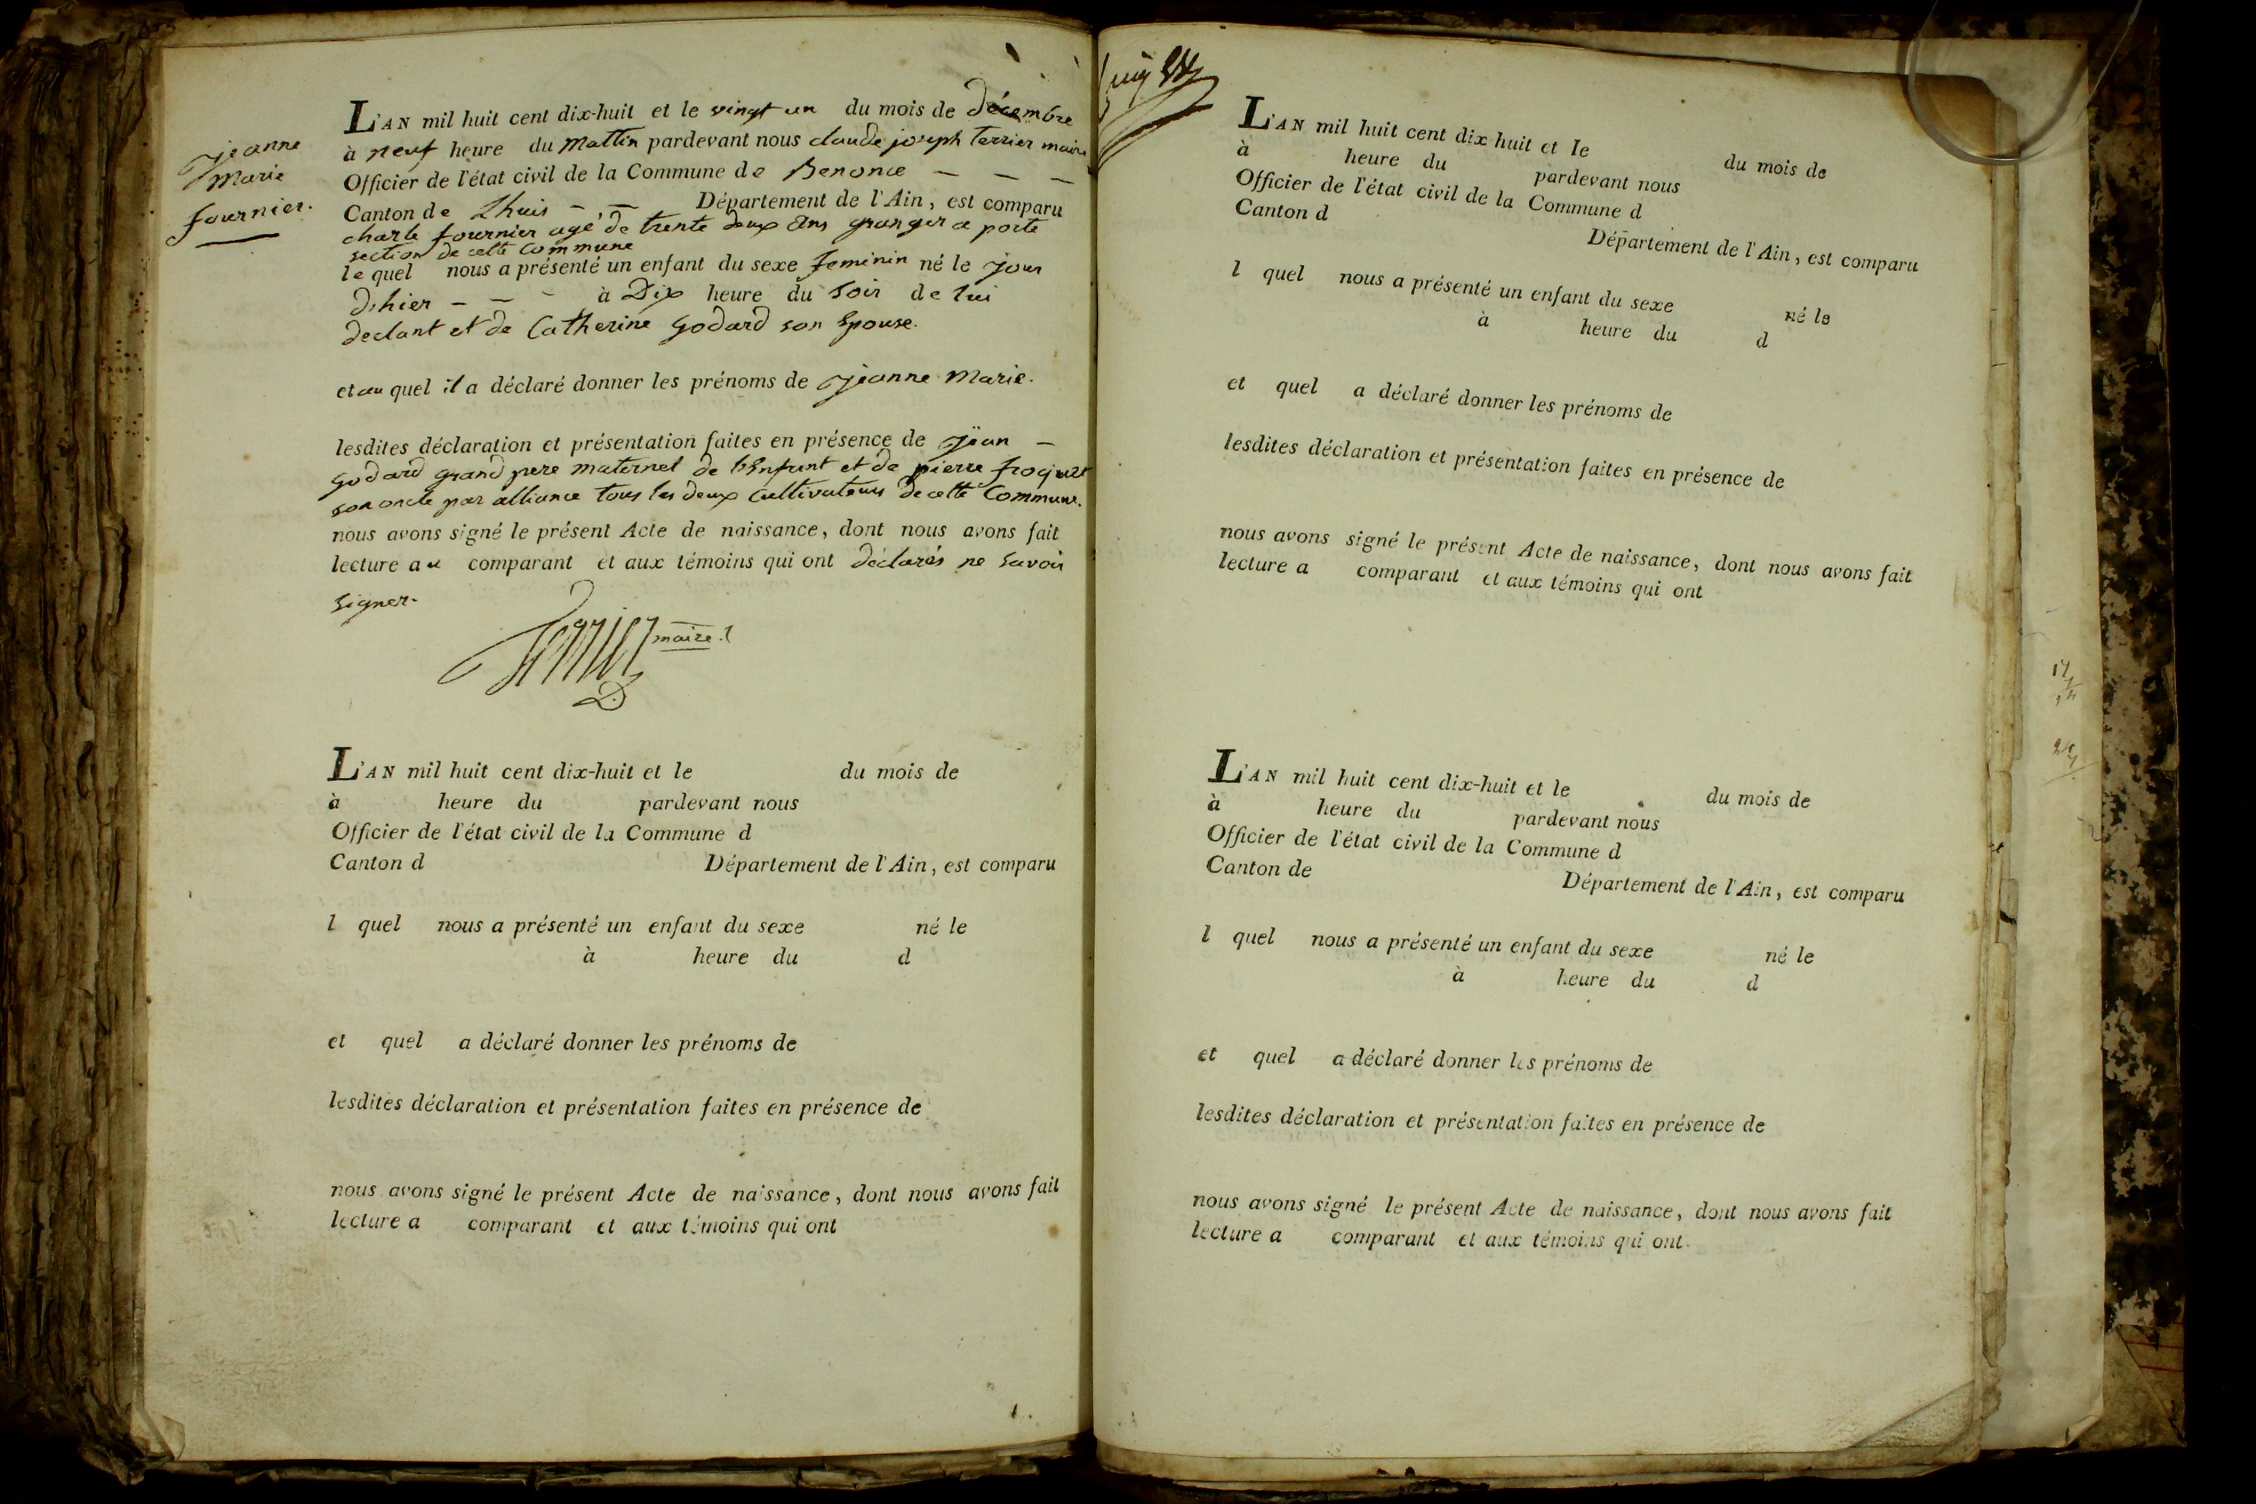 jeanne
marie
fournier.
L'AN mil huit cent dix-huit et le vingt un du mois de décembre
à neuf heure du mattin pardevant nous claude joseph terrier maire
Officier de l'état civil de la Commune de Benonce — — —
Canton de Lhuis — — Département de l'Ain, est comparu
charle fournier agé de trente deux ans granger a porte
section de cette commune
le quel nous a présenté un enfant du sexe feminin né le jour
d'hier — — - à Dix heure du soir de lui
declant et de Catherine Godard son Epouse.
et au quel il a déclaré donner les prénoms de jeanne Marie.
lesdites déclaration et présentation faites en présence de jean —
Godard grand pere maternel de l'Enfant et de pierre
son oncle par alliance tous les deux Cultivateurs de cette Commune.
nous avons signé le présent Acte de naissance, dont nous avons fait
lecture au comparant et aux témoins qui ont déclarés ne savoir
signer.
Terrier maire
L'AN mil huit cent dix-huit et le du mois de
à heure du pardevant nous
Officier de l'état civil de la Commune d
Canton d Département de l'Ain, est comparu
l quel nous a présenté un enfant du sexe né le
à heure du d
et quel a déclaré donner les prénoms de
lesdites déclaration et présentation faites en présence de
nous avons signé le présent Acte de naissance, dont nous avons fait
lecture a comparant et aux témoins qui ont
L'AN mil huit cent dix huit et le du mois de
à heure du pardevant nous
Officier de l'état civil de la Commune d
Canton d Département de l'Ain, est comparu
l quel nous a présenté un enfant du sexe né le
à heure du d
et quel a déclaré donner les prénoms de
lesdites déclaration et présentation faites en présence de
nous avons signé le présent Acte de naissance, dont nous avons fait
lecture a comparant et aux témoins qui ont
L'AN mil huit cent dix-huit et le du mois de
à heure du pardevant nous
Officier de l'état civil de la Commune d
Canton de Département de l'Ain, est comparu
l quel nous a présenté un enfant du sexe né le
à heure du d
et quel a déclaré donner les prénoms de
lesdites déclaration et présentation faites en présence de
nous avons signé le présent Acte de naissance, dont nous avons fait
lecture a comparant et aux témoins qui ont